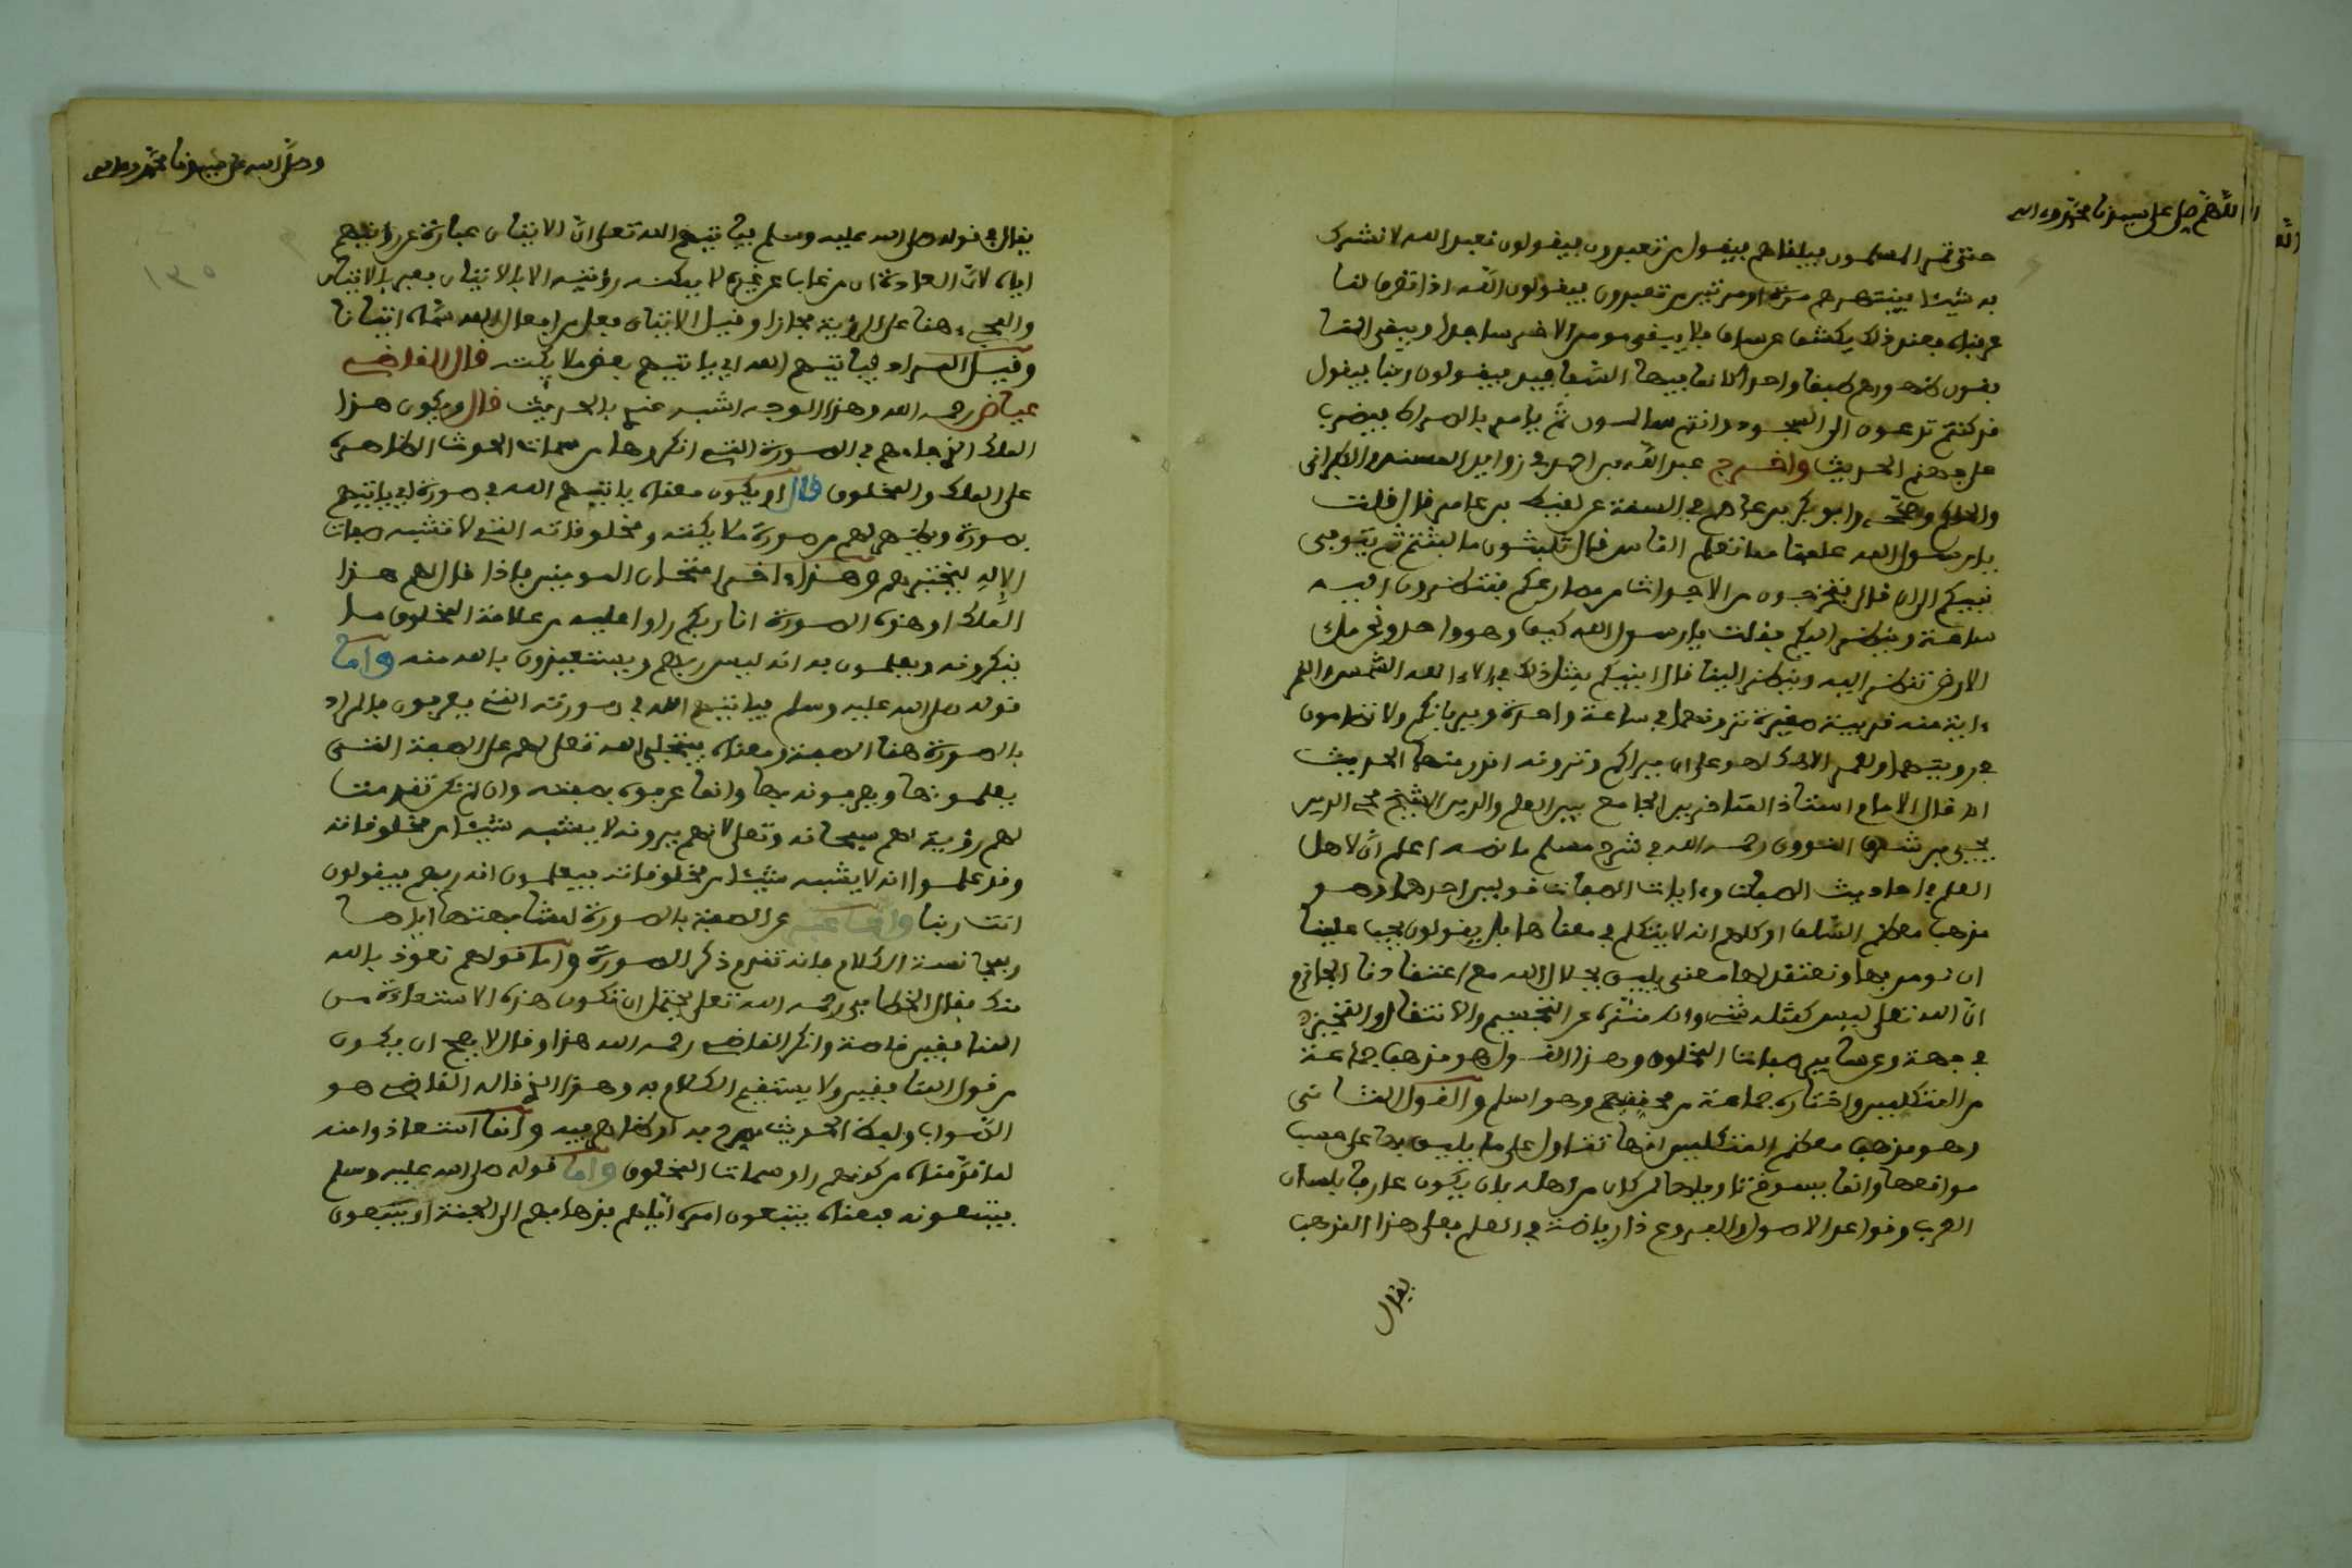 اللهم صل على سيدنا محمد وءاله
حتى تمر المسلمون فيلقاهم فيقول من تعبدون فيقولون نعبد الله لا نشرك
به شيئا فينتهرهم مرة او مرتين من تعبدون فيقولون الله اذا تعرف لنا
عرفناه فعند ذلك يكشف عن ساق فلا يبقى مومن الا خر ساجدا ويبقى المنا
فقون ظهورهم طبقا واحدا كانما فيها السفافيد فيقولون ربنا فيقول
قد كنتم تدعون الى السجود وانتم سالمون ثم يامر بالصراط فيضرب
على جهنم الحديث واخرج عبد الله بن احمد في زوايد المسند والطبراني
والحاكم وصححه وابو بكر بن عاصم في السنة عن لقيط بن عامر قال قلت
يا رسول الله علمنا مما تعلم الناس قال تلبثون ما لبثتم ثم يتوفى
نبيكم الى ان قال فتخرجون من الاجداث من مصارعكم فتنظرون اليه
ساعة وينظر اليكم فقلت يا رسول الله كيف وهو واحد ونحن ملء
الارض تنظر اليه وينظر الينا قال انبيكم بمثل ذلك في ءالاء الله الشمس والقمر
ءاية منه قريبة صغيرة ترونهما في ساعة واحدة ويريانكم ولا تضامون
في رويتهما ولعمر الاهك لهو على ان يراكم وترونه اقدر منهما الحديث
اه قال الامام استاذ المتاخرين الجامع بين العلم والدين الشيخ محي الدين
يحيى بن شرف النووي رحمه الله في شرح مسلم ما نصه اعلم ان لاهل
العلم في احاديث الصفات وءايات الصفات قولين احدهما وهو
مذهب معظم السلف او كلهم انه لا يتكلم في معناها بل يقولون يجب علينا
ان نومن بها ونعتقد لها معنى يليق بجلال الله مع اعتقادنا الجازم
ان الله تعلى ليس كمثله شيء وانه منزه عن التجسيم والانتقال والتحيز
في جهة وعن ساير صفات المخلوق وهذا القول هو مذهب جماعة
من المتكلمين واختاره جماعة من محققيهم وهو اسلم والقول الثاني
وهو مذهب معظم المتكلمين انها تتاول على ما يليق بها على حسب
مواقعها وانما يسوغ تاويلها لمن كان من اهله بان يكون عارفا بلسان
العرب وقواعد الاصول والفروع ذا رياضة في العلم فعلى هذا المذهب
يقال
وصلى الله على سيدنا محمد وءاله
يقال في قوله صلى الله عليه وسلم فياتيهم الله تعلى ان الاتيان عبارة عن رؤيتهم
اياه لان العادة ان من غاب عن غيره لا يمكنه رؤيته الا بالاتيان فعبر بالاتيان
والمجيء هنا عن الرؤية مجازا وقيل الاتيان فعل من افعال الله سماه اتيانا
وقيل المراد بياتيهم الله اي ياتيهم بعض ملايكته قال القاضي
عياض رحمه الله وهذا الوجه اشبه عندي بالحديث قال ويكون هذا
الملك الذي جاءهم في الصورة التي انكروها من سمات الحدث الظاهرة
على الملك والمخلوق قال او يكون معناه ياتيهم الله في صورة اي ياتيهم
بصورة ويظهر لهم من صورة ملايكته ومخلوقاته التي لا تشبه صفات
الاله ليختبرهم وهذا ءاخر امتحان المومنين فاذا قال لهم هذا
الملك او هذه الصورة انا ربكم راوا عليه من علامة المخلوق ما
ينكرونه ويعلمون به انه ليس ربهم ويستعيذون بالله منه واما
قوله صلى الله عليه وسلم فياتيهم الله في صورته التي يعرفون فالمراد
بالصورة هنا الصفة ومعناه فيتجلى الله تعلى لهم على الصفة التي
يعلمونها ويعرفونه بها وانما عرفوه بصفته وان لم تكن تقدمت
لهم رؤية لهم سبحانه وتعلى لانهم يرونه لا يشبه شيئا من مخلوقاته
وقد علموا انه لا يشبه شيئا من مخلوقاته فيعلمون انه ربهم فيقولون
انت ربنا وانما عبر عن الصفة بالصورة لمشابهتها اياها
ولمجانسة الكلام فانه تقدم ذكر الصورة واما قولهم نعوذ بالله
منك فقال الخطابي رحمه الله تعلى يحتمل ان تكون هذه الاستعاذة من
المنافقين خاصة وانكر القاضي رحمه الله هذا وقال لا يصح ان يكون
من قول المنافقين ولا يستقيم الكلام به وهذا الذي قاله القاضي هو
الصواب ولفظ الحديث مصرح به او ظاهر فيه وانما استعاذوا منه
لما قدمناه من كونهم راوا سمات المخلوق واما قوله صلى الله عليه وسلم
فيتبعونه فمعناه يتبعون امره اياهم بذهابهم الى الجنة او يتبعون